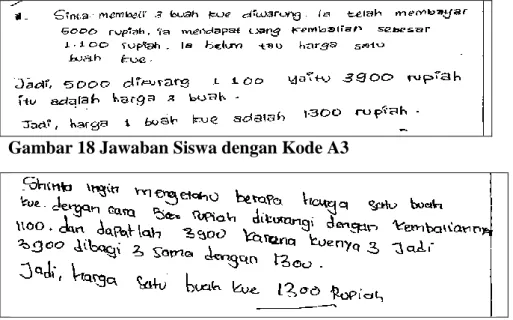 1. Sinta membeli 3 buah kue diwarung. Ia telah membayar
5000 rupiah, ia mendapat uang kembalian sebesar
1.100 rupiah. Ia belum tau harga satu
buah kue.
Jadi, 5000 dikurang 1.100 yaitu 3900 rupiah
itu adalah harga 3 buah.
Jadi, harga 1 buah kue adalah 1300 rupiah.
Gambar 18 Jawaban Siswa dengan Kode A3
Shinta ingin mengetahu berapa harga satu buah
kue. dengan cara rupiah dikurangi dengan kembaliannya
1100. dan dapatlah 3900 karena kuenya 3 Jadi
3900 dibagi 3 sama dengan 1300.
Jadi, harga satu buah kue 1300 Rupiah